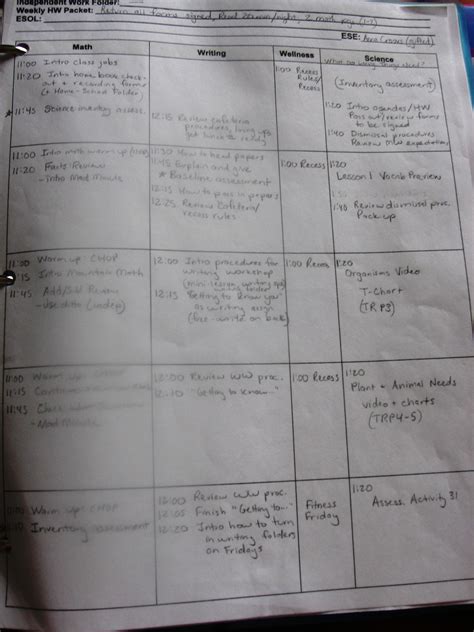 Independent Work Folder:
Weekly HW Packet: Return all forms signed, Read 20min/night, 2 math pgs (1-1)
ESOL:
ESE:
Math Writing Wellness Science
11:00 Intro class jobs
11:20 Intro home book check-
out + recording forms
(+ Home-School Folder)
11:45 Science inventory assess.
12:15 Review cafeteria
procedures, line up,
get lunch to ready
1:00 Recess
rules/
Recess
(Inventory assessment)
1:20 Intro agendas/HW
Pass out/review forms
to be signed
1:40 Dismissal procedures
Review HW expectations
11:00 Intro math warm up
11:20 Facts Review
- Intro Mad Minute
11:30 How to head papers
11:45 Explain and give
* Baseline assessment
12:15 How to pass in papers
12:25 Review Cafeteria/
recess rules
1:00 Recess
1:20
Lesson 1 Vocab Preview
1:40 Review dismissal proc.
Pack-up
11:00 Warm up: CHOP
11:15 Intro Mountain Math
11:45 Add/Sub Review
- use ditto (indep)
12:00 Intro procedures for
writing workshop
(mini-lesson, writing
12:15 "Getting to know you"
as writing assign
(free-write on back)
1:00 Recess
1:20
Organisms Video
T-Chart
(TRP3)
11:00 Warm up CHOP
11:15
11:45
- Mad Minute
12:00 Review WW proc.
12:10 "Getting to know..."
1:00 Recess
1:20
Plant + Animal Needs
video + charts
(TRP4-5)
11:00 Warm up: CHOP
Inventory assessment
12:00 Review WW proc.
12:05 Finish "Getting to..."
12:20 Intro how to turn
in writing folders
on Fridays
Fitness
Friday
1:20
Assess. Activity 31